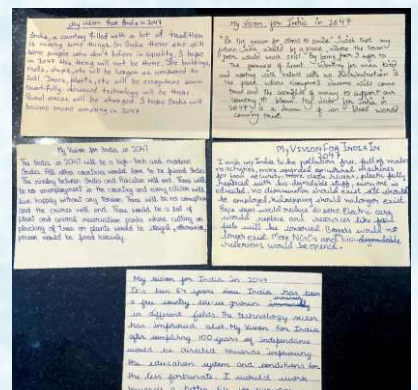 My Vision for India in 2047
India, a country filled with a lot of tradition
is missing some things. In India there are still
some people who don't believe in equality. I hope
in 2047 this thing will not be there. The buildings,
malls, shops, etc will be longer as compared to
Trees, plants, etc will be everywhere seen
beautifully. Advanced technology will be there.
Rural areas will be changed. I hope India will
become more amazing in 2047
My Vision for India in 2047
"Be the reason for others to smile", wish that my
future India would be a place, where the term
'poor' would never exist. By being poor I refer to
the poorness of heart.
and nothing with values with no discrimination is
the place where everyone's dreams will come
true and the examples of to support our
country to bloom. My vision for India in
2047 is a dream of an Ideal world
coming true.
My Vision for India in 2047
The India in 2047 will be a high-tech and modern
India. All other countries would love to be friend India.
The rivalry between India and Pakistan will end. There will
be no unemployment in the country and every citizen will
live happily without any tension. There will be no corruption
and the crimes will end. There would be a lot of
bird and animal reservation parks where cutting or
plucking of trees or plants would be illegal, otherwise,
person would be fined heavily.
MY VISION FOR INDIA IN
2047
I wish my India to be pollution free, full of modern
machines, more upgraded agricultural machines
for food security, more cloth bags, plastic fully
replaced with bio degradable stuff, everyone is
educated, no discrimination should exist, all should
be employed, kidnapping should no longer exist.
Rape cases would reduce to zero. Electric cars
would replace and resources like fossil
fuels will be conserved. Beggars would no
longer exist. More NGOs and bio-degradable
would be opened.
My Vision for India in 2047
It's been 64 years since India has been
a free country. We've grown immensely
in different fields. The technology sector
has improved alot. My vision for India
after completing 100 years of independence
would be directed towards improving
the education system and conditions for
the less fortunate. I would work
towards a better life for